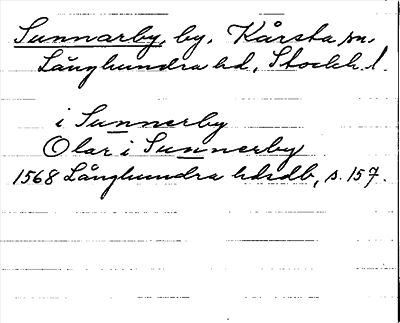 Sunnarby, by, Kårsta sn,
Långhundra hd, Stockh. l.
i Sunnerby
Olar i Sunnerby
1568 Långhundra hdsdb, s. 157.